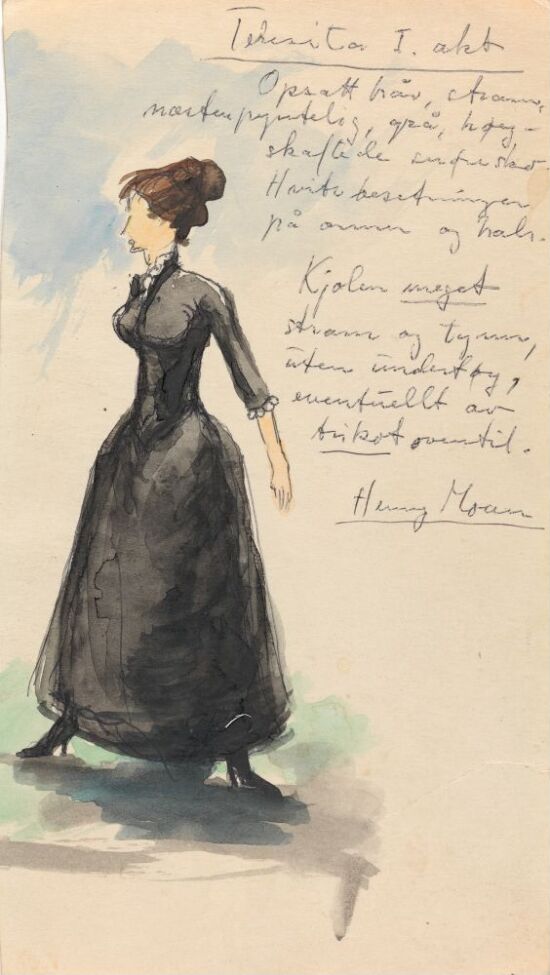 Teresita I. akt
Opsatt hår, stramt,
næsten pyntelig, grå, høy-
skaftede snøresko.
Hvite besetninger
på ermer og hals.
Kjolen meget
stram og tynn,
uten undertøy,
eventuellt av
trikot oventil.
Henny Moan